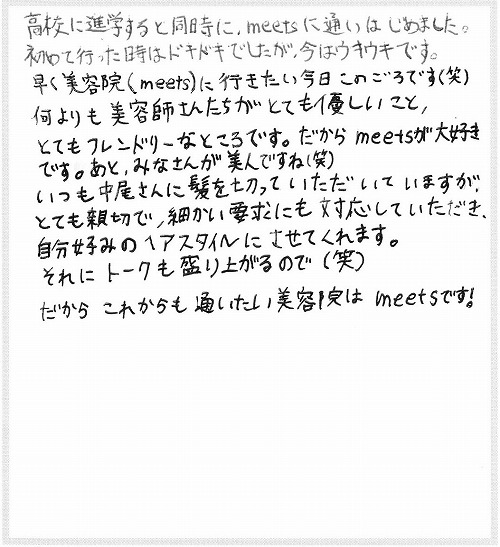 高校に進学すると同時に,meetsに通いはじめました。
初めて行った時はドキドキでしたが,今はウキウキです。
早く美容院(meets)に行きたい今日このごろです(笑)
何よりも美容師さんたちがとても優しいこと,
とてもフレンドリーなところです。だからmeetsが大好き
です。あと,みなさんが美人ですね(笑)
いつも中尾さんに髪を切っていただいていますが,
とても親切で,細かい要求にも対応していただき、
自分好みのヘアスタイルにさせてくれます。
それにトークも盛り上がるので(笑)
だからこれからも通いたい美容院はmeetsです!